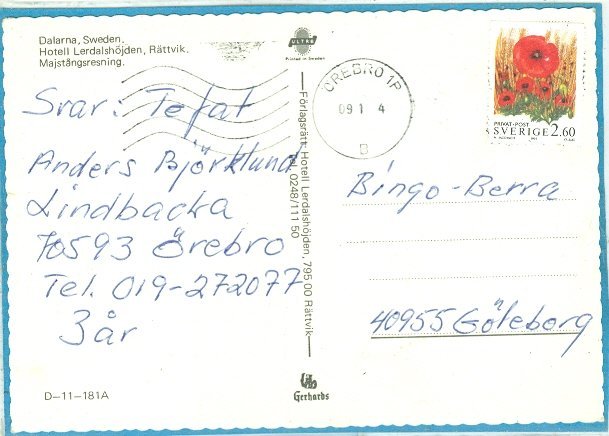 Dalarna, Sweden.
Hotell Lerdalshöjden, Rättvik.
Majstångsresning.
ULTRA
Printed in Sweden
ÖREBRO 1P
09 1 4
B
PRIVAT-POST
SVERIGE 2.60
Svar: Tefat
Anders Björklund
Lindbacka
70593 Örebro
Tel. 019-272077
3 år
Förlagsrätt: Hotell Lerdalshöjden, 795 00 Rättvik
Tel. 0248/111 50
Bingo-Berra
40955 Göteborg
D-11-181A
Gerhards